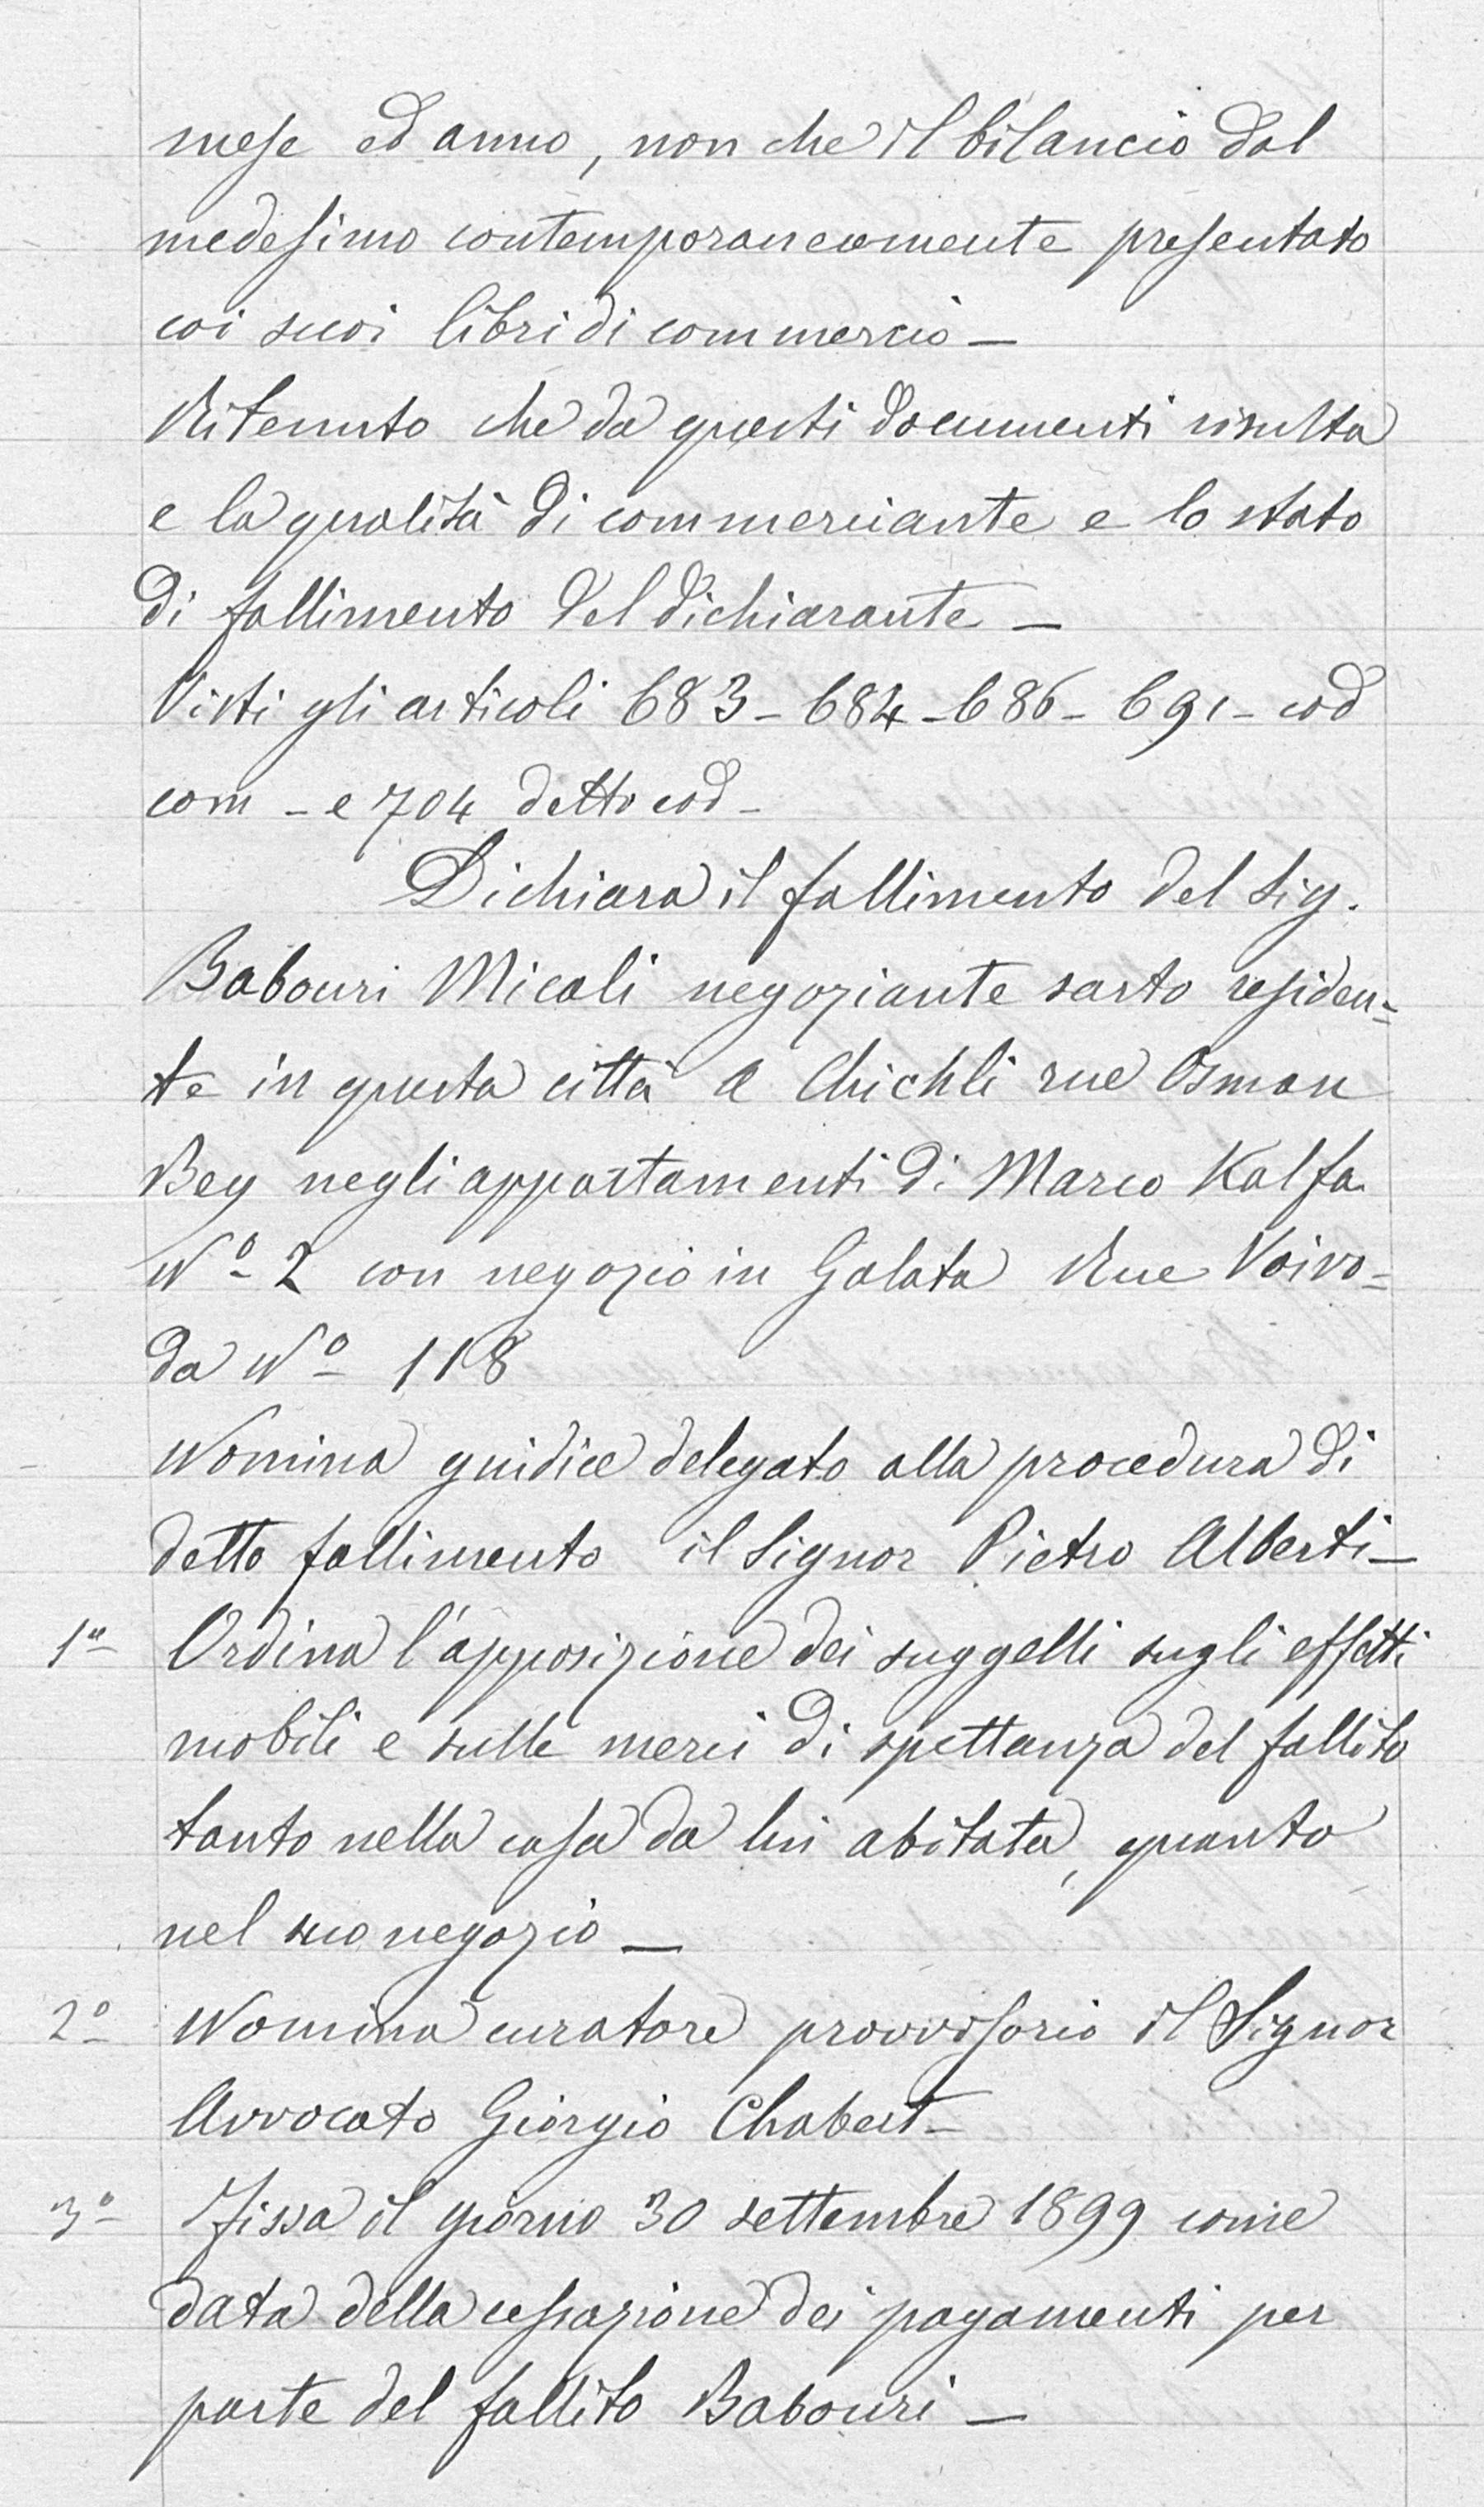 mese ed anno, non che il bilancio dal
medesimo contemporaneamente presentato
coi suoi libri di commercio —
Ritenuto che da questi documenti risulta
e la qualità di commerciante e lo stato
di fallimento del dichiarante —
Visti gli articoli 683 - 684 - 686 - 691 - cod
com - e 704 detto cod -
Dichiara il fallimento del Sig.
Babouri Micali negoziante sarto residen=
te in questa città a Chichli rue Osman
Bey negli appartamenti di Marco Kalfa
Nº 2 con negozio in Galata Rue Voivo=
da Nº 118
Nomina giudice delegato alla procedura di
detto fallimento il Signor Pietro Alberti —
1º Ordina l'apposizione dei suggelli sugli effetti
mobili e sulle merci di spettanza del fallito
tanto nella casa da lui abitata, quanto
nel suo negozio —
2º Nomina curatore provvisorio il Signor
Avvocato Giorgio Chabert —
3º Fissa il giorno 30 settembre 1899 come
data della cessazione dei pagamenti per
parte del fallito Babouri —